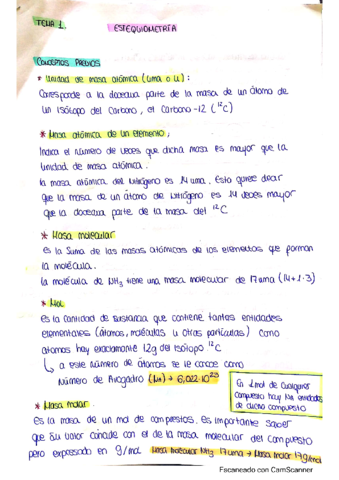 TEMA 1.
ESTEQUIOMETRÍA
CONCEPTOS PREVIOS
* Unidad de masa atómica (uma o u):
Corresponde a la doceava parte de la masa de un átomo de
un isótopo del Carbono, el Carbono-12 (¹²C)
* Masa atómica de un elemento:
Indica el número de veces que dicha masa es mayor que la
unidad de masa atómica.
la masa atómica del nitrógeno es 14 uma. Esto quiere decir
que la masa de un átomo de nitrógeno es 14 veces mayor
que la doceava parte de la masa del ¹²C
* Masa molecular
es la suma de las masas atómicas de los elementos que forman
la molécula.
la molécula de NH₃ tiene una masa molecular de 17uma (14+1·3)
* Mol
es la cantidad de sustancia que contiene tantas entidades
elementales (átomos, moléculas u otras partículas) como
átomos hay exactamente 12g del isótopo ¹²C
↳ a este número de átomos se le conoce como
Número de Avogadro (Na) → 6,022·10²³
En 1 mol de cualquier
compuesto hay Na entidades
de dicho compuesto
* Masa molar.
es la masa de un mol de compuestos. es importante saber
que su valor coincide con el de la masa molecular del compuesto
pero expresado en g/mol. Masa molecular NH₃ 17uma → Masa molar 17g/mol
Escaneado con CamScanner